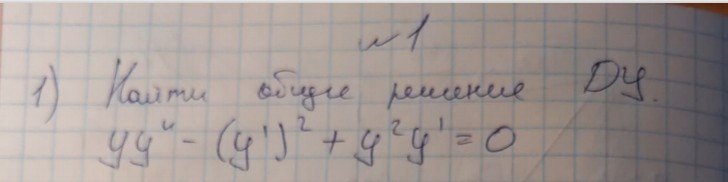 №1
1) Найти общее решение ДУ.
yy'' - (y')² + y²y' = 0